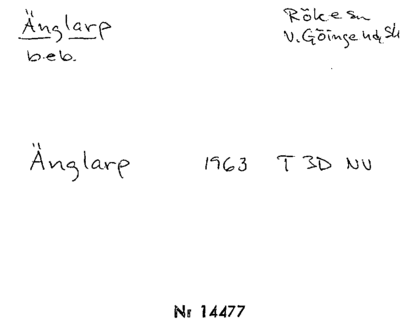 Änglarp
b.eb.
Röke sn
V. Göinge hd, Sk
Änglarp 1963 T 3D NV
Nr 14477